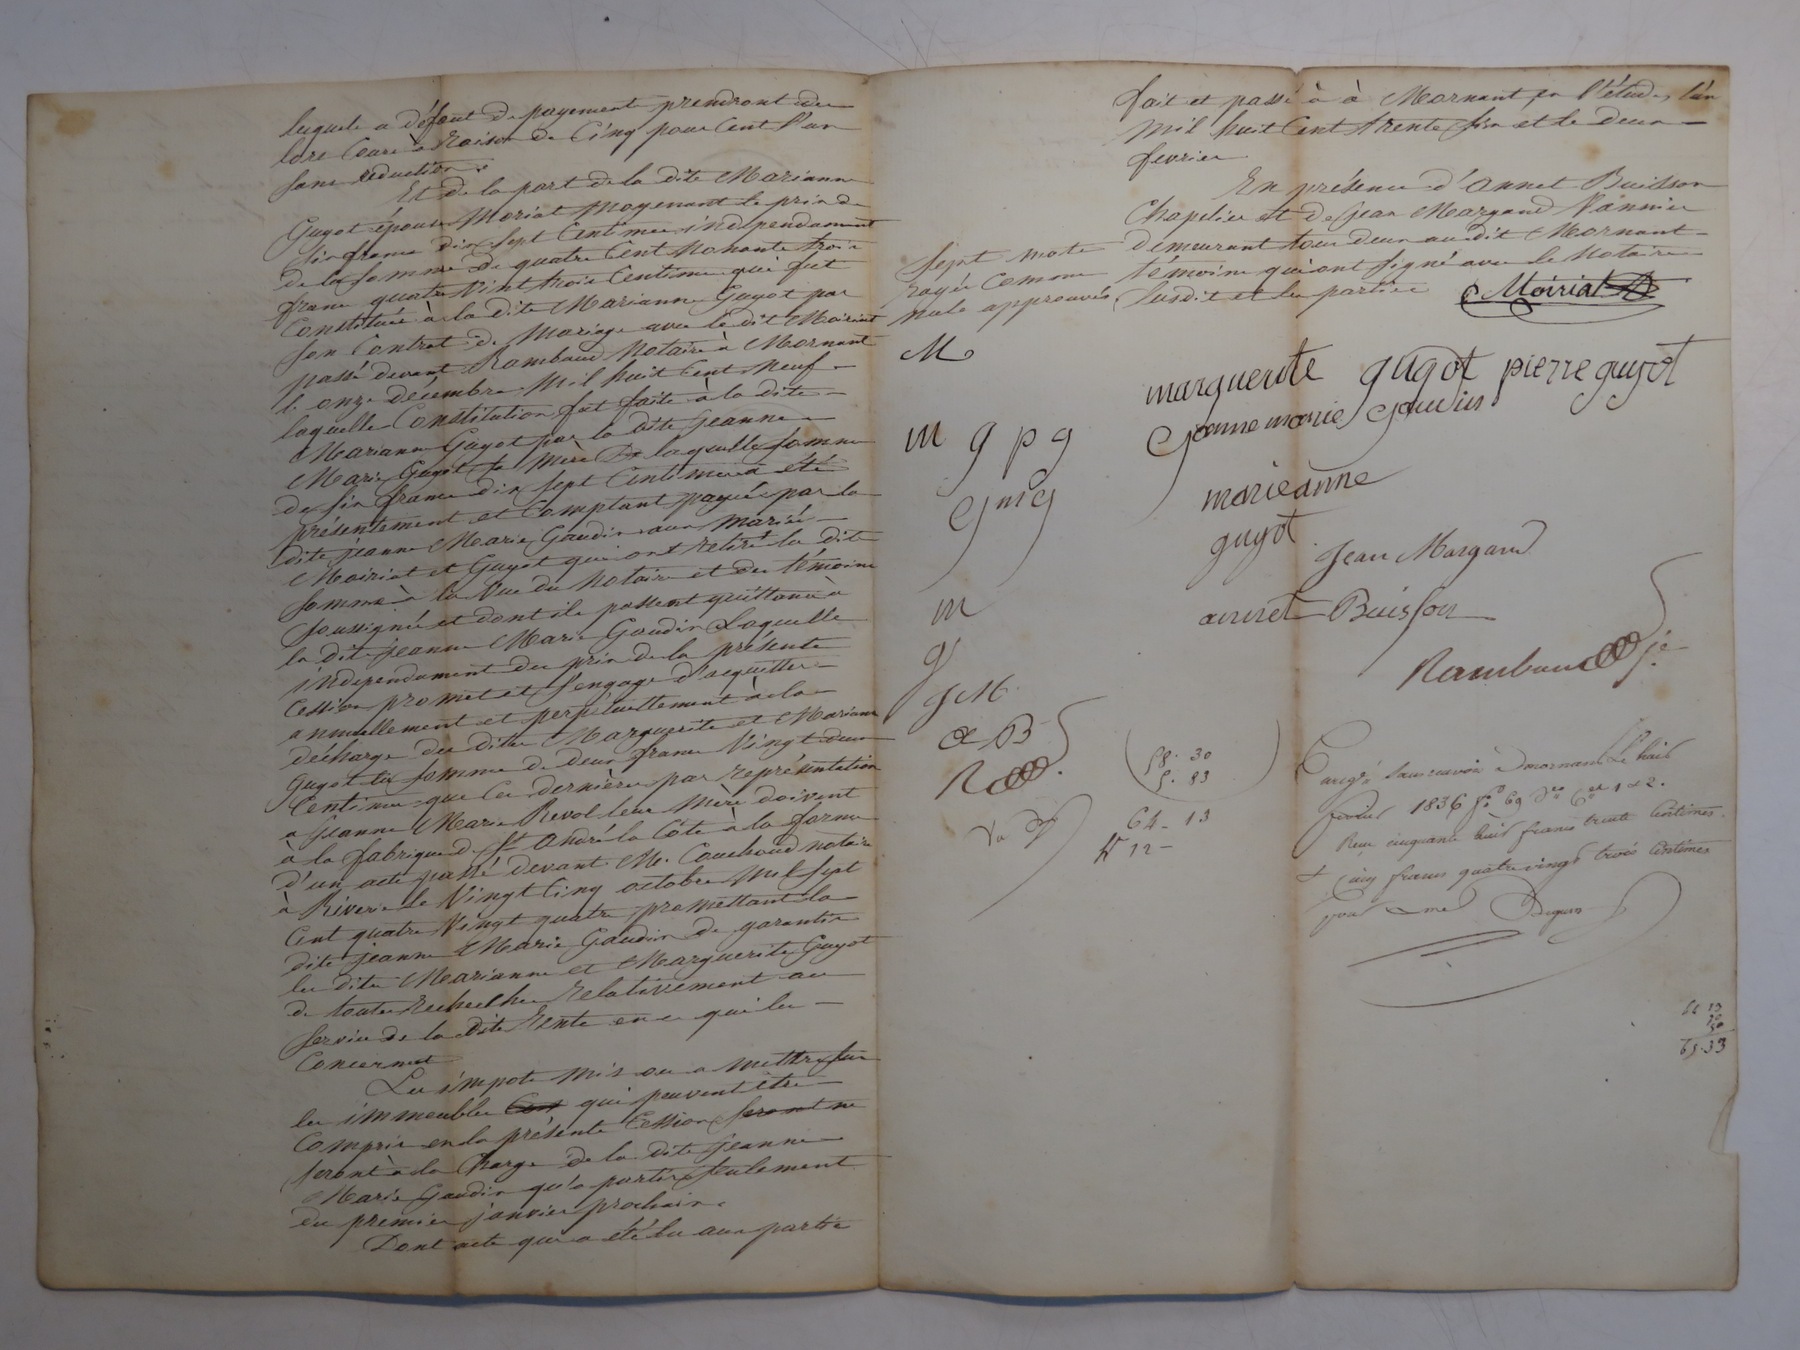 lequels a défaut de payement prendront de
lors Cours à Raison de Cinq pour Cent l'an
sans reduction.
Et de la part de la dite Marianne
Guyot épouse Moriat Moyenant le prix de
six francs dix sept Centimes indépendament
de la somme de quatre Cent Nonante trois
francs quatre Vint trois Centimes qui fut
Constituée à la dite Marianne Guyot par
son Contrat de Mariage avec le dit Moiriat
passé devant Rambaud Notaire à Mornant
le onze décembre Mil huit Cent Neuf
laquelle Constitution fut faite à la dite
Marianne Guyot par la dite Jeanne
Marie Guyot sa Mère De laquelle somme
de six francs dix sept Centimes a été
présentement et Comptant payée par la
dite jeanne Marie Gaudin aux mariés
Moiriat et Guyot qui ont retiré la dite
somme à la Vue du Notaire et des témoins
soussignés et dont ils passent quittance à
la dite jeanne Marie Gaudin Laquelle
indépendament du prix de la présente
Cession promet et s'engage d'acquitter
annuellement et perpétuellement à la
décharge des dites Marguerite et Marianne
Guyot la somme de deux francs Vingt deux
Centimes que Ces dernières par représentation
a Jeanne Marie Revol leur Mère doivent
à la fabrique de St André la Côte à la forme
d'un acte passé devant M. Couchoud notaire
à Riverie le Vingt Cinq octobre Mil Sept
Cent quatre Vingt quatre promettant la
dite jeanne Marie Gaudin de garantir
les dites Marianne et Marguerite Guyot
de toutes Recherches Relativement au
service de la dite Rente en ce qui les
Concernent
Les impots mis ou a mettre sur
les immeubles qui peuvent être
Compris en la présente Cession seront ne
seront à la Charge de la dite Jeanne
Marie Gaudin qu'a partir seulement
du premier janvier prochain.
Dont acte qui a été lu aux parties
fait et passé à à Mornant en l'étude, l'an
Mil huit Cent trente six et le deux
fevrier
En présence d'Annet Buisson
Chapelier et de Jean Margand Vannier
demeurant tous deux au dit Mornant
témoins qui ont signé avec le Notaire
susdit et les parties Moiriat
Sept mots
rayés Comme
nuls approuvés
M
marguerite guyot pierre guyot
jeanne marie gaudin
m g p g
g m g
marieanne
guyot
Jean Margand
m
annet Buisson
g
Rambaud
J M
a B
R
58. 30
5. 83
64 - 13
12 -
Enregé sans renvoi à Mornant Le huit
fevrier 1836 fo 69 Vo Ces 1 & 2.
Reçu cinquante huit francs trente Centimes
& Cinq francs quatre vingt trois Centimes
65.33